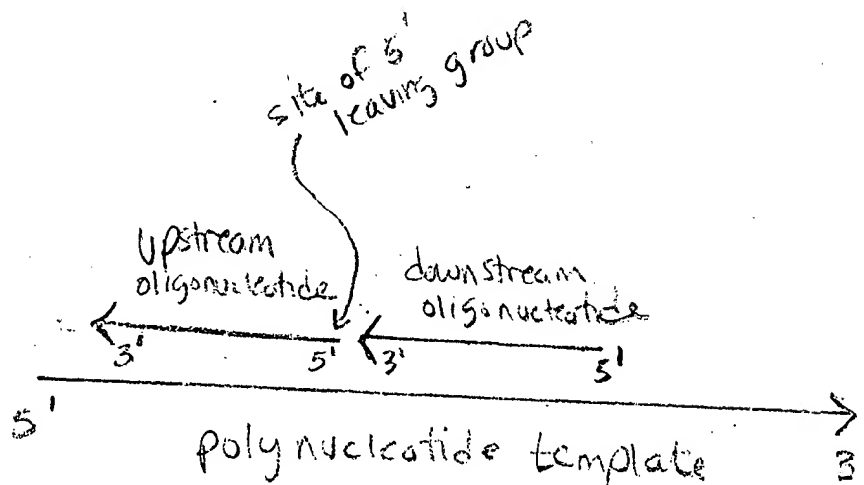 site of 5'
leaving group
upstream
oligonucleotide
downstream
oligonucleotide
3' 5' 3' 5'
5' 3
polynucleotide template